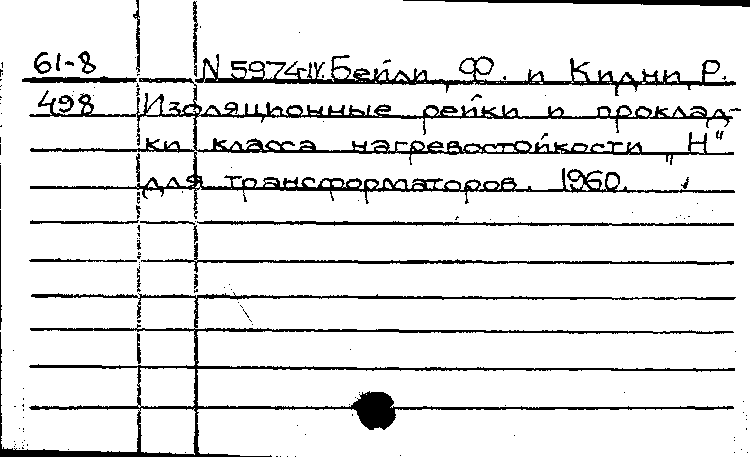 61-8 N 5974-IV. Бейли, Ф. и Кидни, Р.
498 Изоляционные рейки и проклад-
ки класса нагревостойкости „Н"
для трансформаторов. 1960.